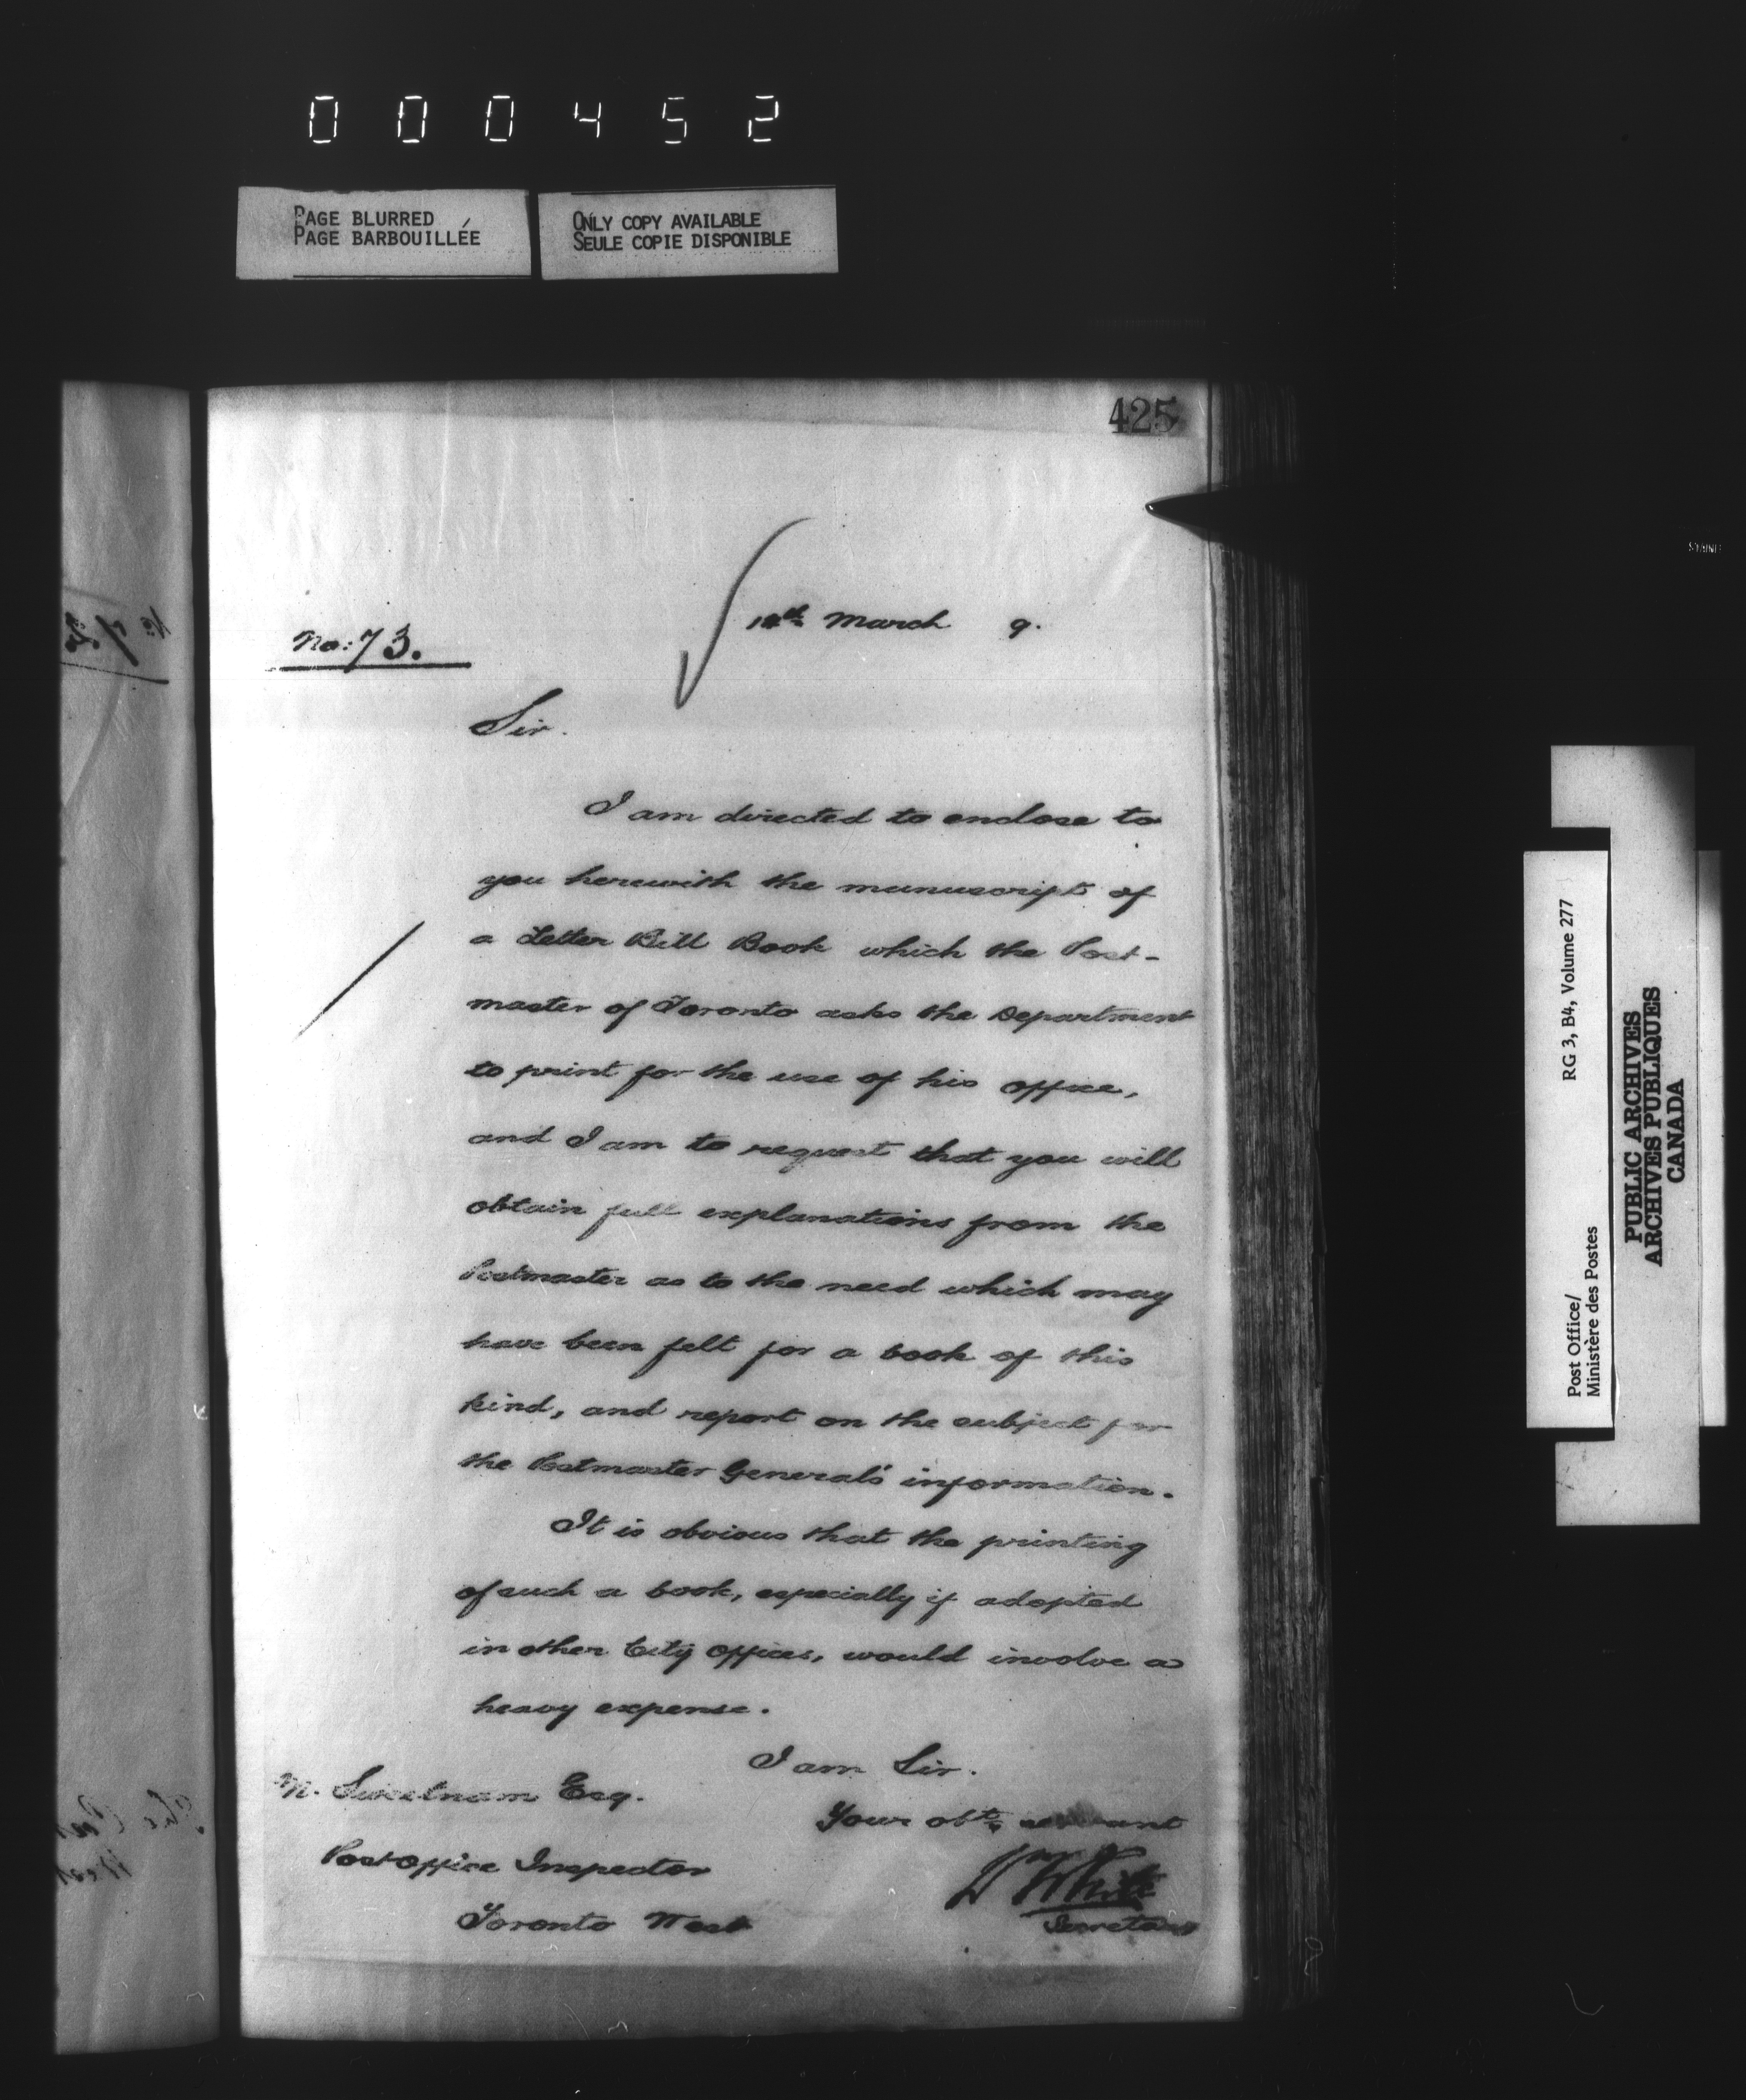 0 0 0 4 5 2
PAGE BLURRED
PAGE BARBOUILLÉE
ONLY COPY AVAILABLE
SEULE COPIE DISPONIBLE
425
March 9.
No: 73.
Sir.
I am directed to enclose to
you herewith the manuscript of
a Letter Bill Book which the Post-
master of Toronto asks the Department
to print for the use of his office,
and I am to request that you will
obtain full explanations from the
Postmaster as to the need which may
have been felt for a book of this
kind, and report on the subject for
the Postmaster General's information.
It is obvious that the printing
of such a book, especially if adopted
in other City Offices, would involve a
heavy expense.
I am Sir.
Your obt. servant
Wm White
Secretary
M. Sweetnam Esq.
Post Office Inspector
Toronto West
Post Office/
Ministère des Postes
RG 3, B4, Volume 277
PUBLIC ARCHIVES
ARCHIVES PUBLIQUES
CANADA